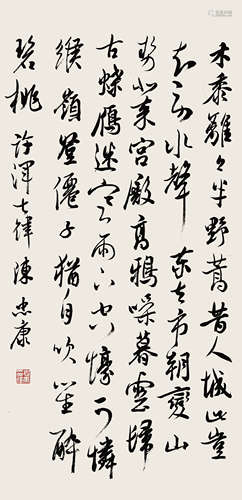 禾黍離々半野蒿昔人城此豈
知勞水聲東去市朝變山
勢北来宮殿高鴉噪暮雲歸
古堞鴈迷寒雨下空壕可憐
緱嶺登僊子猶自吹笙醉
碧桃 許渾七律 陳忠康